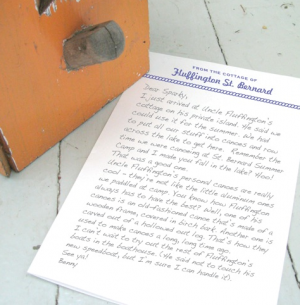 FROM THE COTTAGE OF
Fluffington St. Bernard
Dear Sparky,
I just arrived at Uncle Fluffington's
cottage on his private island. He said we
could use it for the summer. We had
to put all our stuff into canoes and row
across the lake to get here. Remember the
time we were canoeing at St. Bernard Summer
Camp and I made you fall in the lake? Hoo!
That was a good one.
Uncle Fluffington's personal canoes are really
cool – they're not like the little aluminum ones
we paddled at camp. You know how Fluffington
always has to have the best? Well, one of his
canoes is an old-fashioned canoe that's made of a
wooden frame, covered in birch bark. Another one is
carved out of a hollowed out log. That's how they
used to make canoes a long, long time ago.
I can't wait to try out the rest of Fluffington's
boats in the boathouse. (He said not to touch his
new speedboat, but I'm sure I can handle it).
See ya!
Benny